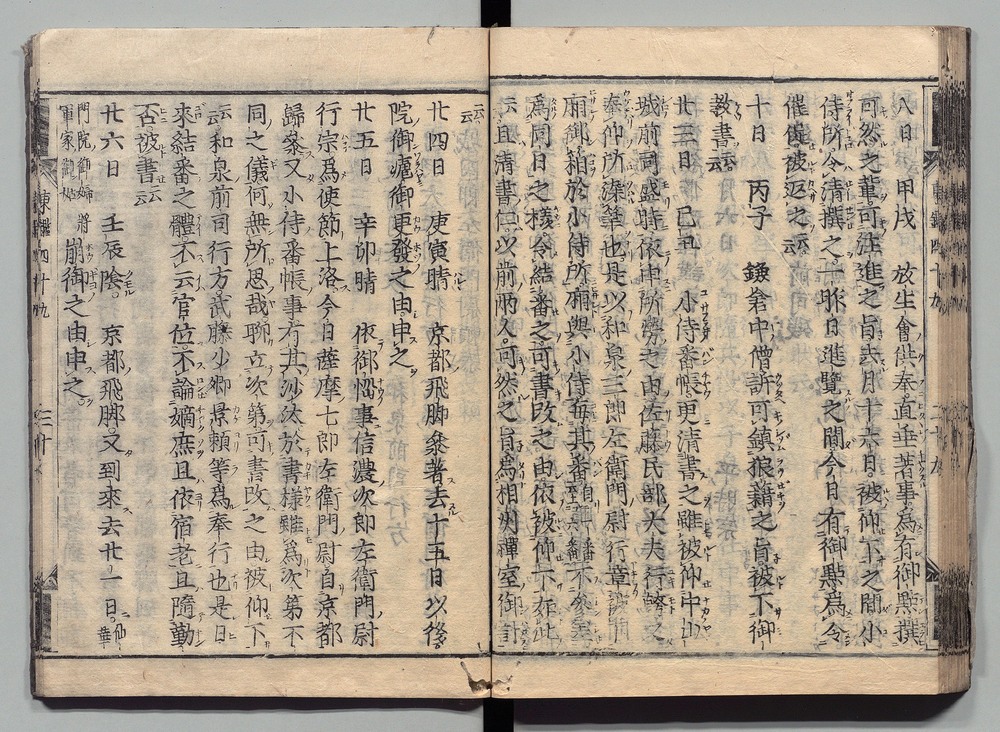 八日　甲戌　放生會供奉直垂著事爲有御點撰
可然之輩可注進之旨去月十六日被仰下之間小
侍所令清撰之昨日進覽之間今日有御點爲令
催促被返之云云
十日　丙子　鎌倉中僧訴可鎮狼藉之旨被下御
教書云云
廿三日　己丑　小侍番帳更清書之雖被仰中山
城前司盛時依申所勞之由佐藤民部大夫行幹之
奉仰所染筆也是以和泉三郎左衛門尉行章
廂御簡於小侍所廂與小侍每其番
爲同日之樣令結番之可書改之由依被仰下
云且清書但以前兩人可然之旨爲相州禪室御計
云云
廿四日　庚寅晴　京都飛脚參著去十五日以後
院御瘧御更發之由申之
廿五日　辛卯晴　依御惱事信濃次郎左衛門尉
行宗爲使節上洛今日薩摩七郎左衛門尉自京都
歸參又小侍番帳事有其沙汰於書樣雖爲次第不
同之儀何無所思哉聊立次第可書改之由被仰下
云云和泉前司行方武藤少卿景頼等爲奉行也是日
來結番之體不云官位不論嫡庶且依宿老且隨勤
否被書云云
廿六日　壬辰陰　京都飛脚又到來去廿一日
門院御婦將
軍家御姑
崩御之由申之
東鑑四十九
三十